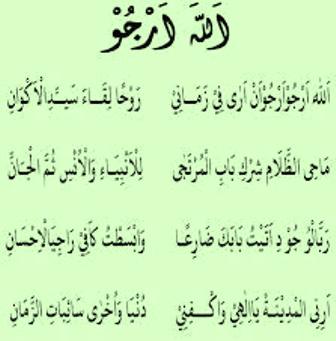 اَللهَ اَرْجُوْ
اَللهَ اَرْجُوْاَرْجُوْاَنْ اَرٰى فِيْ زَمَانِيْ رَوْحًا لِقَاءَ سَيِّدِالْاَكْوَانِ
مَاحِى الظَّلَامِ شِرْكِ بَابِ الْمُرْتَجٰى لِلْاَنْبِيَاءِ وَالْاُنْسِ ثُمَّ الْجَانِّ
رَبَّالْوُجُوْدِ اَتَيْتُ بَابَكَ ضَارِعًا وَابْسَطْتُ كَفِيْ رَاجِيَالْاِحْسَانِ
اَرِنِى الْمَدِيْنَةْ يَااِلٰهِيْ وَاكْفِنِيْ دُنْيَا وَاُخْرٰى سَائِبَاتِ الزَّمَانِ